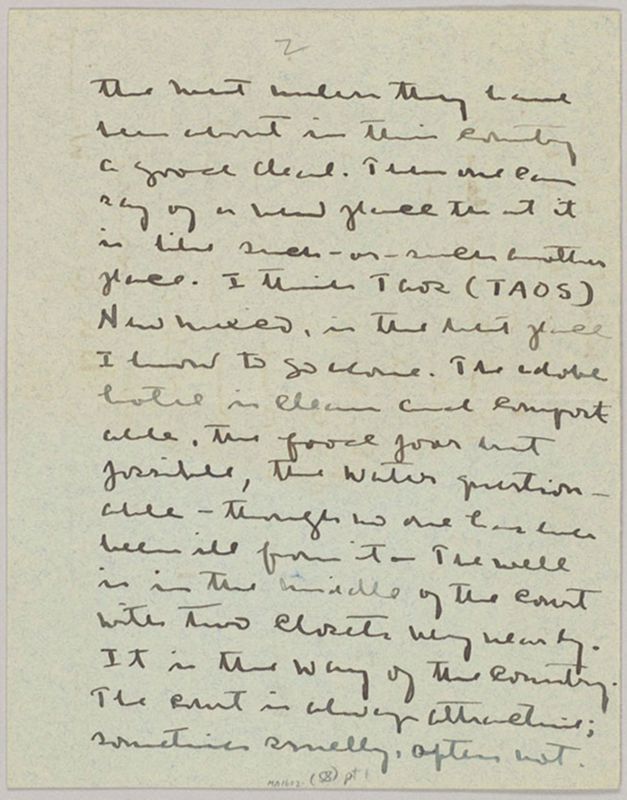 2
the west unless they have
been about in this country
a good deal. Then one can
say of a new place that it
is like such-or-such another
place. I think Taos (TAOS)
New Mexico, is the best place
I know to go alone. The adobe
hotel is clean and comfort
able, the food poor but
possible, the water question-
able - though no one has ever
been ill from it - The well
is in the middle of the court
with two closets very near by.
It is the way of the country.
The court is always attractive;
sometimes smelly, often not.
MA1602 (58) pt 1